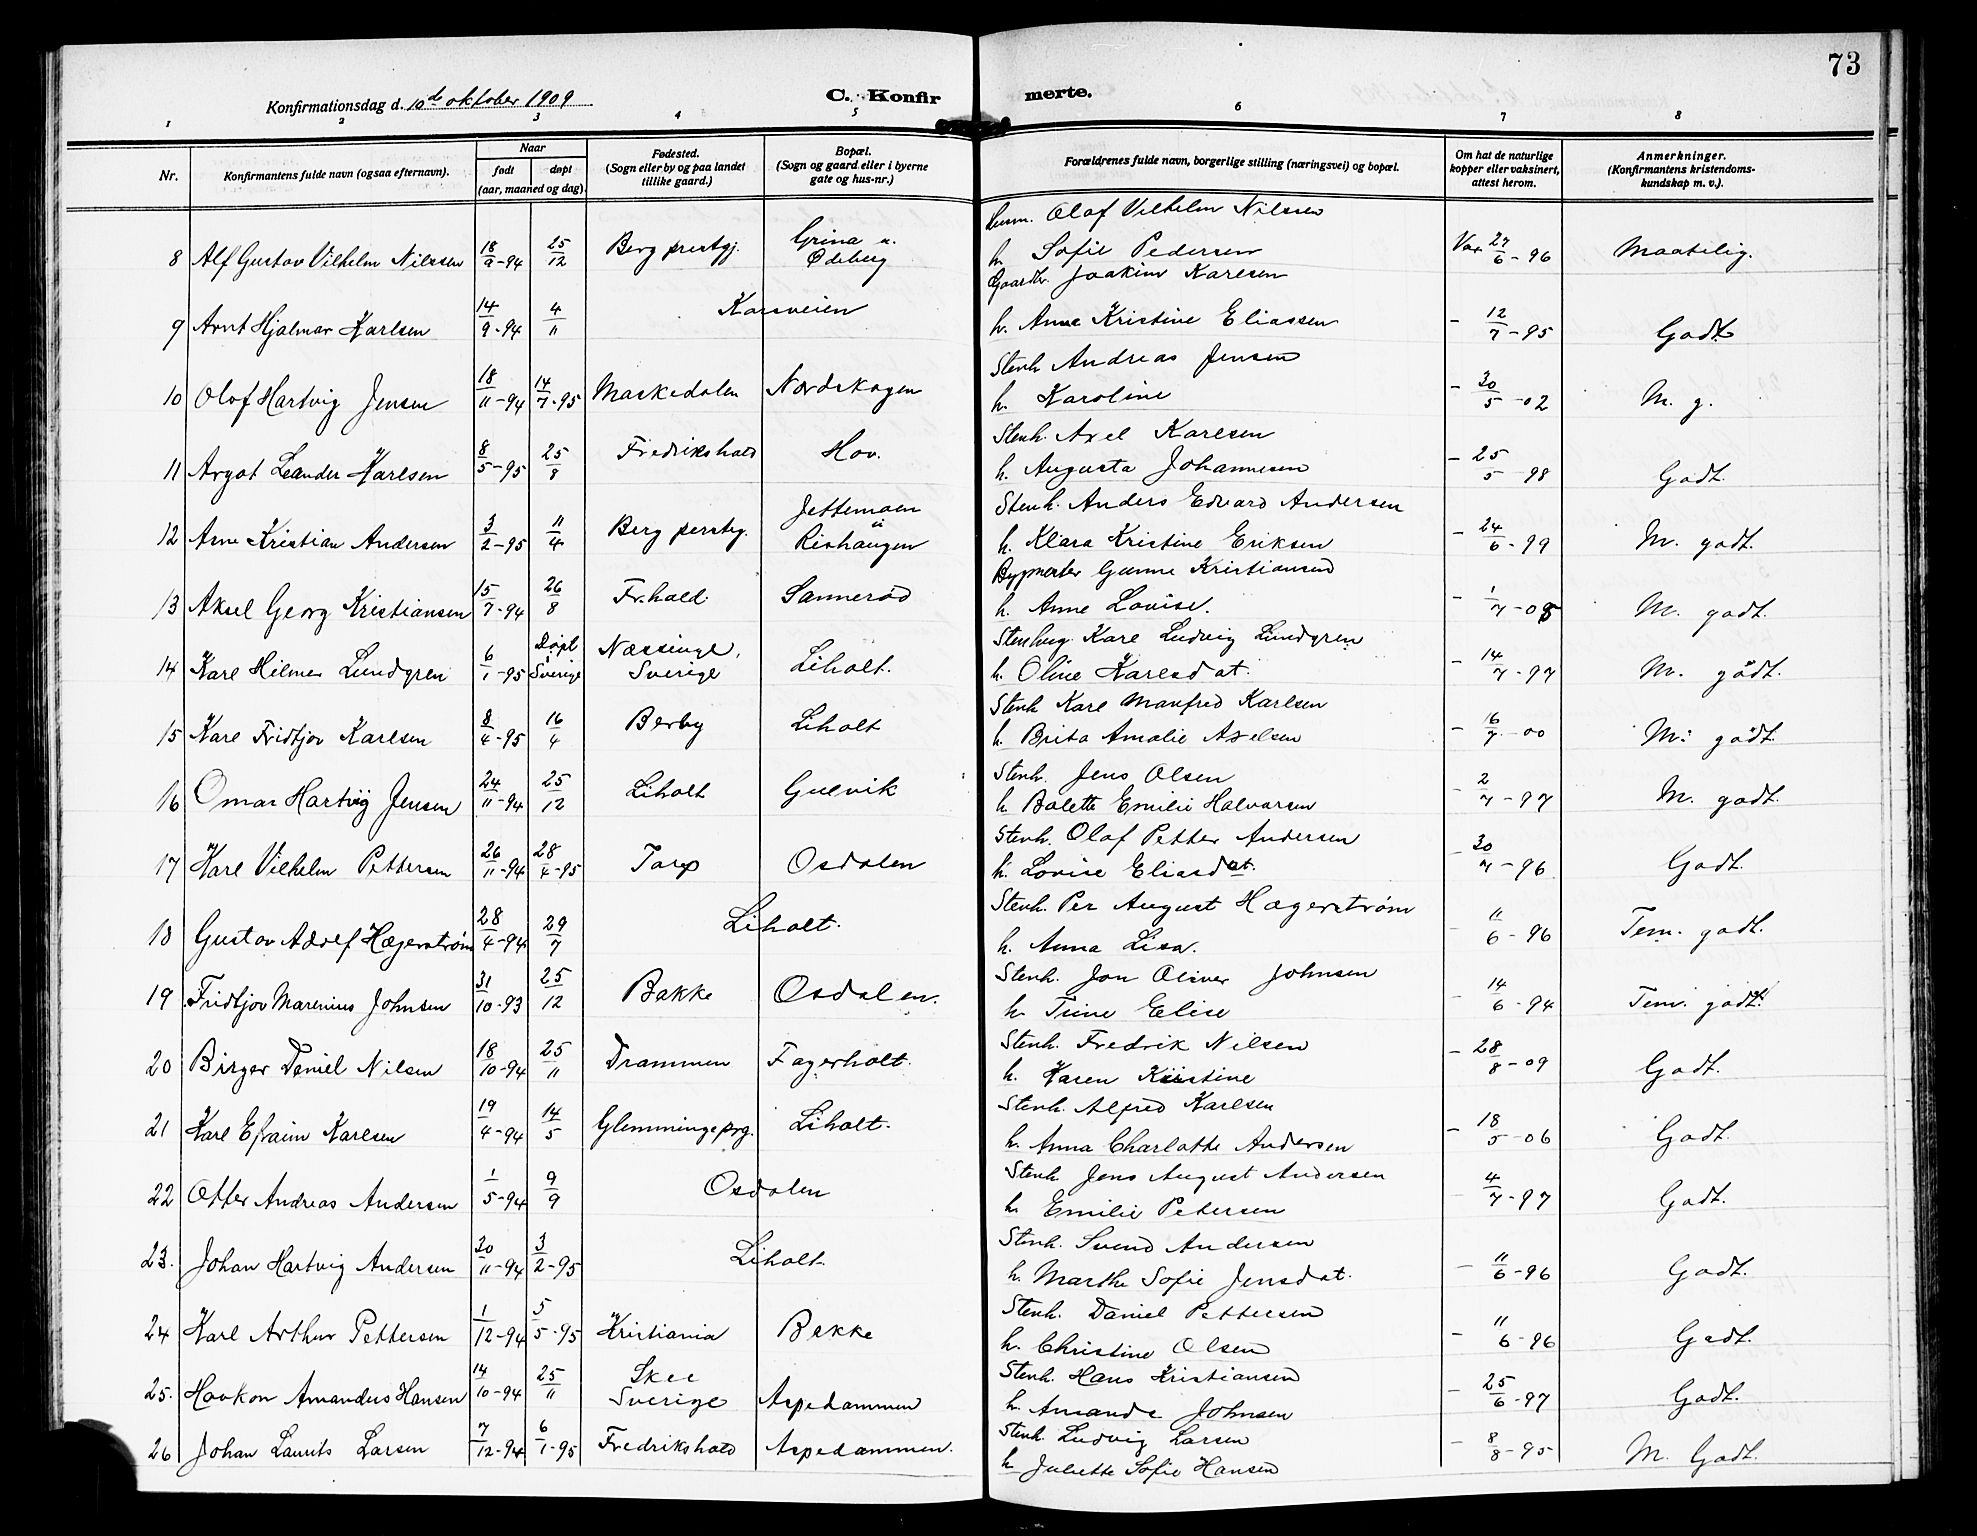 73
Konfirmationsdag d. 10de oktober 1909
C. Konfirmerte.
1 2 3 4 5 6 7 8
Nr.
Konfirmantens fulde navn (ogsaa efternavn).
Naar
født døpt
(aar, maaned og dag).
Fødested.
(Sogn eller by og paa landet
tillike gaard.)
Bopæl.
(Sogn og gaard eller i byerne
gate og hus-nr.)
Forældrenes fulde navn, borgerlige stilling (næringsvei) og bopæl.
Om hat de naturlige
kopper eller vaksinert,
attest herom.
Anmerkninger.
(Konfirmantens kristendoms-
kundskap m. v.).
Olaf Vilhelm Nilssen
8 Alf Gustav Vilhelm Nilssen 18/9-94 25/12 Berg prestgj. Grina u. Ødeberg h. Sofie Pedersen Vax 27/6-96 Maatelig.
Gaardbr. Joakim Karlsen
9 Arnt Hjalmar Karlsen 14/9-94 4/11 Korsveien h. Anne Kristine Eliassen - 12/7-95 Godt
Stenh. Andreas Jensen
10 Olaf Hartvig Jensen 18/11-94 14/7-95 Maskedalen Nordskogen h. Karoline - 30/5-02 M. g.
Stenh. Axel Karlsen
11 Argot Leander Karlsen 8/5-95 25/8 Fredrikshald Hov. h. Augusta Johannesen - 25/5 98 Godt.
Stenh. Anders Edvard Andersen
12 Arne Kristian Andersen 3/2-95 11/4 Berg Jettemoen u Rishaugen h. Klara Kristine Eriksen - 24/6-99 M. godt.
Bygmester Gunne Kristiansen
13 Aksel Georg Kristiansen 15/7-94 26/8 Fr.hald. Sannerød h. Anne Lovise. - 1/7-05 M. godt.
Stenhug. Karl Ludvig Lundgren
14 Karl Hilmer Lundgren 6/1-95 Døpt i Sverige Næssinge, Sverige Liholt. h. Oline Karlsdat. - 14/7-97 M. godt.
Stenh Karl Manfred Karlsen
15 Karl Fridtjov Karlsen 8/4-95 16/4 Berby Liholt h. Brita Amalie Axelsen - 16/7-00 M: godt.
Stenh. Jens Olsen
16 Omar Hartvig Jensen 24/11-94 25/12 Liholt Gulvik h. Bolette Emilie Halvorsen - 2/7-97 M. godt.
Stenh. Olaf Petter Andersen
17 Karl Vilhelm Pettersen 26/11-94 28/4-95 Torp Osdalen h. Lovise Eliasdat. - 30/7-96 Godt.
Stenh. Per August Hægerstrøm
18 Gustav Adolf Hægerstrøm 28/4-94 29/7 Liholt. h. Anna Lisa. - 11/6-96 Tem. godt.
Stenh. Jon Oliver Johnsen
19 Fridtjov Marenius Johnsen 31/10-93 25/12 Bakke Osdalen. h. Trine Elise - 14/6-94 Tem. godt.
Stenh. Fredrik Nilsen
20 Birger Daniel Nilsen 18/10-94 25/11 Drammen Fagerholt. h. Karen Kristine - 28/8-09 Godt.
Stenh. Alfred Karlsen
21 Karl Efraim Karlsen 19/4-94 14/5 Glemminge prg. Liholt. h. Anna Charlotte Andersen - 18/5-06 Godt.
Stenh. Jens August Andersen
22 Otter Andreas Andersen 1/5-94 9/9 Osdalen h. Emilie Petersen - 4/7-97 Godt.
Stenh. Svend Andersen
23. Johan Hartvig Andersen 30/11-94 3/2-95 Liholt. h. Marthe Sofie Jensdat. - 11/6-96 Godt.
Stenh. Daniel Pettersen
24 Karl Arthur Pettersen 1/12-94 5/5-95 Kristiania Bakke h. Christine Olsen - 11/6-96 Godt.
Stenh. Hans Kristiansen
25. Haakon Amandus Hansen 14/10-94 25/11 Skee Sverige Aspedammen h. Amanda Johnsen - 25/6-97 Godt.
Stenh. Ludvig Larsen
26 Johan Laurits Larsen 7/12-94 6/1-95 Fredrikshald Aspedammen. h. Juliette Sofie Hansen - 8/8-95 M. Godt.